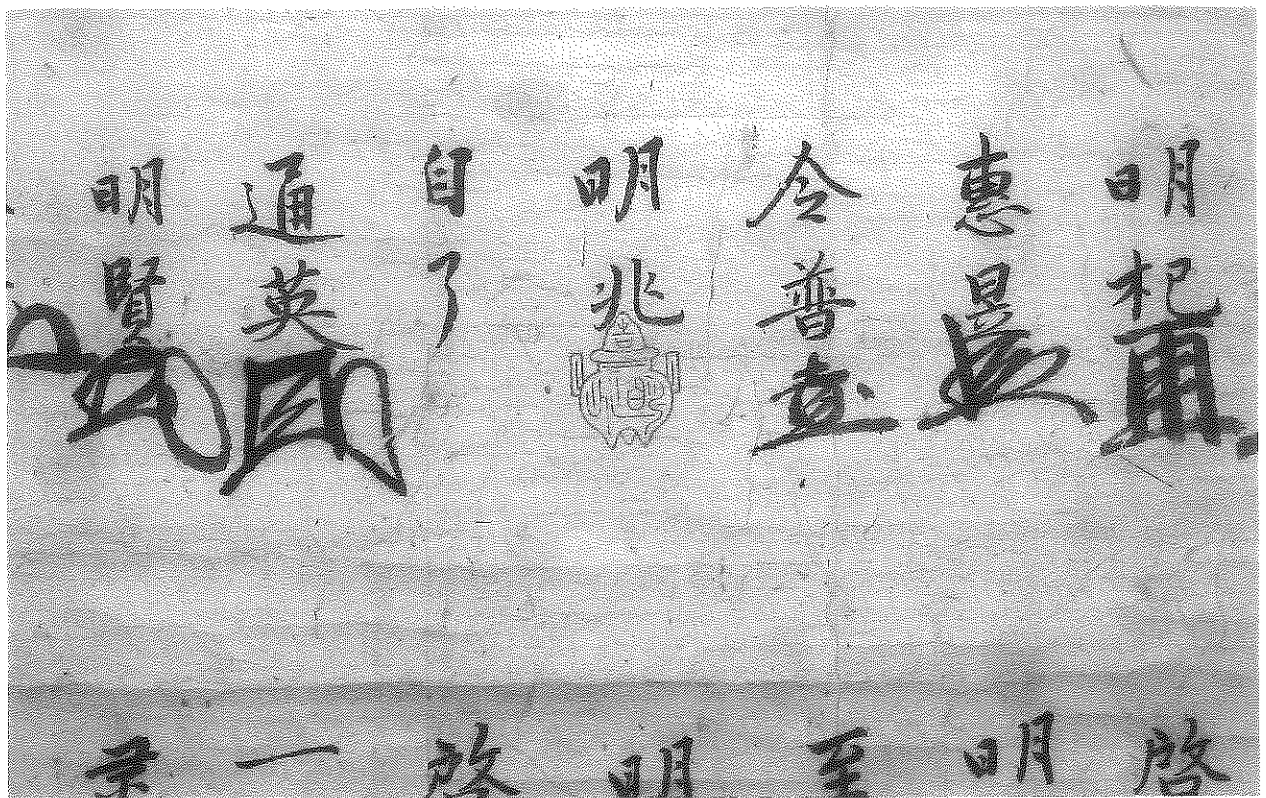 明杞
惠景
令普
明兆
自了
通英
明賢
啓
明
至
明
啓
一